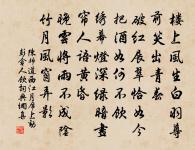 樓上風生白羽尊
前笑出青春
破紅展翠恰如今
把酒如何不飲
繡幕燈深綠暗畫
簾人語黃昏
晚雲將雨不成陰
竹月風窗弄影
陳師道西江月席上勸
彭舍人飲詞